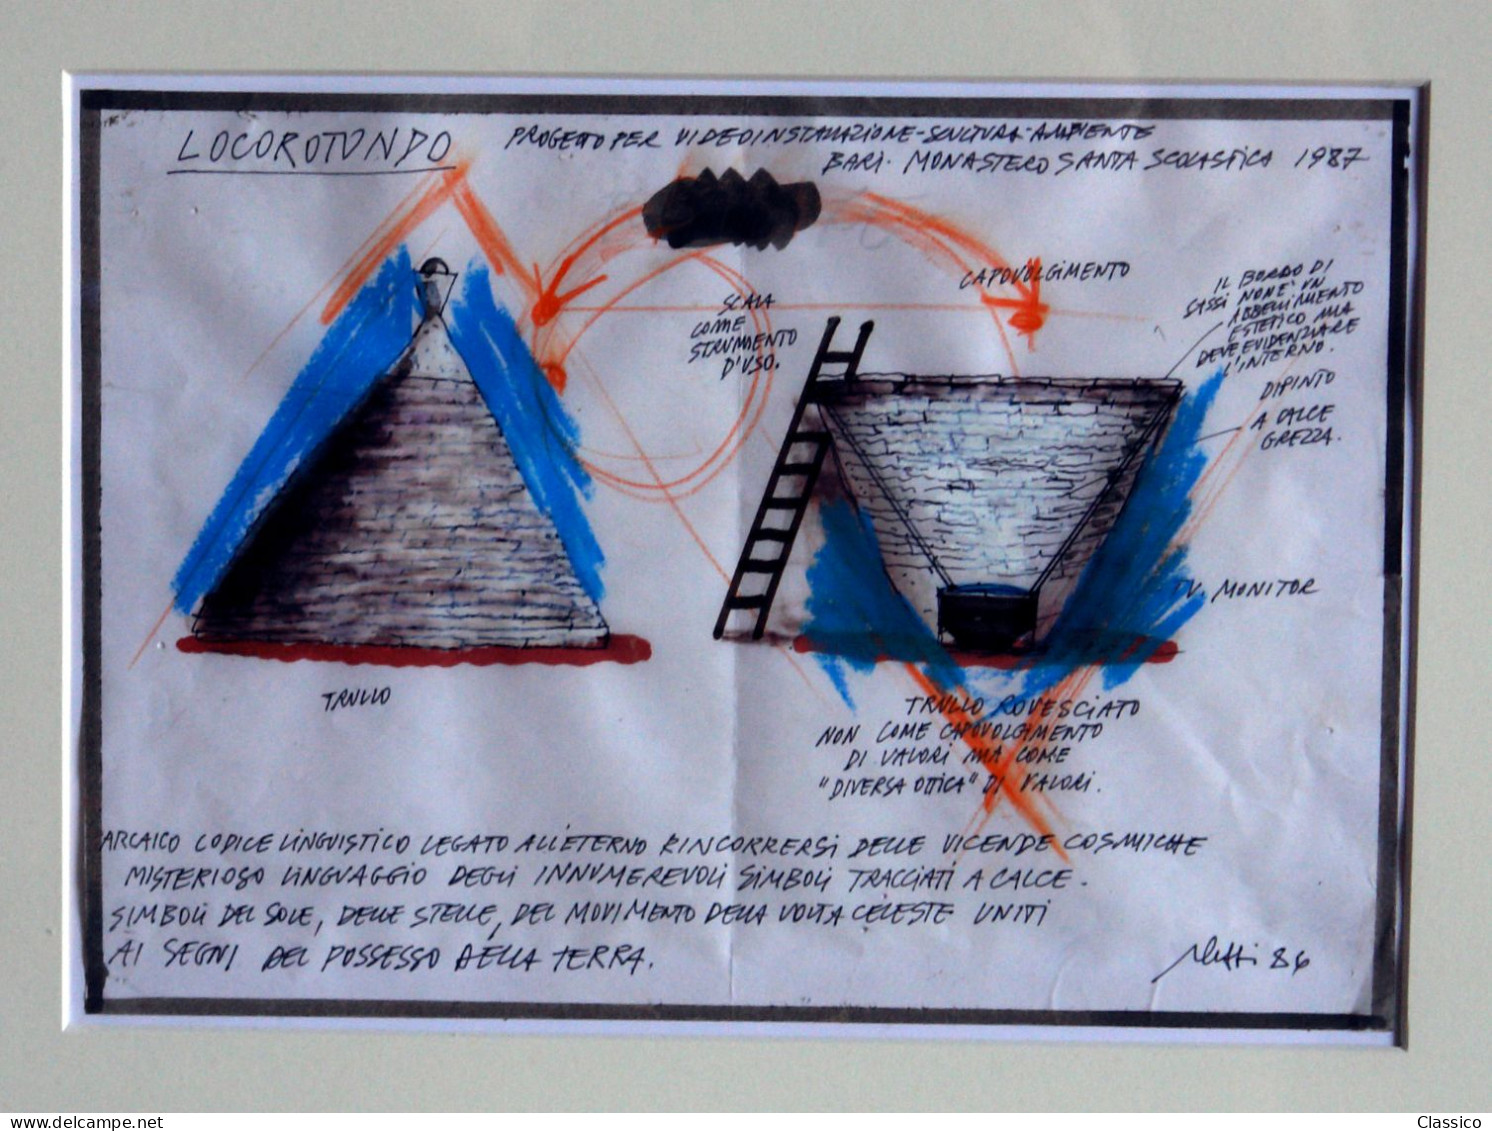 LOCOROTONDO
PROGETTO PER VIDEOINSTALLAZIONE-SCULTURA-AMBIENTE
BARI. MONASTERO SANTA SCOLASTICA 1987
CAPOVOLGIMENTO
SCALA
COME
STRUMENTO
D'USO.
IL BORDO DI
SASSI NON E' UN
ABBELLIMENTO
ESTETICO MA
DEVE EVIDENZIARE
L'INTERNO.
DIPINTO
A CALCE
GREZZA.
TV. MONITOR
TRULLO
TRULLO ROVESCIATO
NON COME CAPOVOLGIMENTO
DI VALORI MA COME
"DIVERSA OTTICA" DI VALORI.
ARCAICO CODICE LINGUISTICO LEGATO ALL'ETERNO RINCORRERSI DELLE VICENDE COSMICHE
MISTERIOSO LINGUAGGIO DEGLI INNUMEREVOLI SIMBOLI TRACCIATI A CALCE.
SIMBOLI DEL SOLE, DELLE STELLE, DEL MOVIMENTO DELLA VOLTA CELESTE UNITI
AI SEGNI DEL POSSESSO DELLA TERRA.
86
delcampe.net
Classico